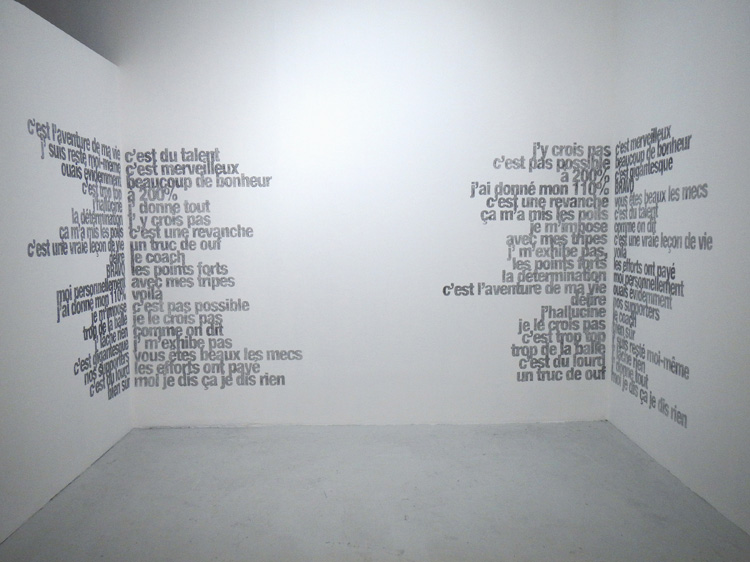 c'est l'aventure de ma vie
j' suis resté moi-même
ouais évidemment
c'est trop top
j'hallucine
la détermination
ça m'a mis les poils
c'est une vraie leçon de vie
BRAVO
moi personnellement
j'ai donné mon 110%
je m'impose
trop de la balle
j' lâche rien
c'est gigantesque
nos supporters
c'est du lourd
bien sur
c'est du talent
c'est merveilleux
beaucoup de bonheur
à 200%
j' donne tout
j' y crois pas
c'est une revanche
un truc de ouf
le coach
les points forts
avec mes tripes
voilà
c'est pas possible
je le crois pas
comme on dit
j' m'exhibe pas
vous êtes beaux les mecs
les efforts ont payé
moi je dis ça je dis rien
j'y crois pas
c'est pas possible
à 200%
j'ai donné mon 110%
c'est une revanche
ça m'a mis les poils
je m'impose
avec mes tripes
j' m'exhibe pas,
les points forts
la détermination
c'est l'aventure de ma vie
j'hallucine
je le crois pas
c'est trop top
trop de la balle
c'est du lourd
un truc de ouf
c'est merveilleux
beaucoup de bonheur
c'est gigantesque
BRAVO
vous êtes beaux les mecs
c'est du talent
comme on dit
c'est une vraie leçon de vie
voilà
les efforts ont payé
moi personnellement
ouais évidemment
nos supporters
le coach
bien sur
j' suis resté moi-même
j' lâche rien
j' donne tout
moi je dis ça je dis rien